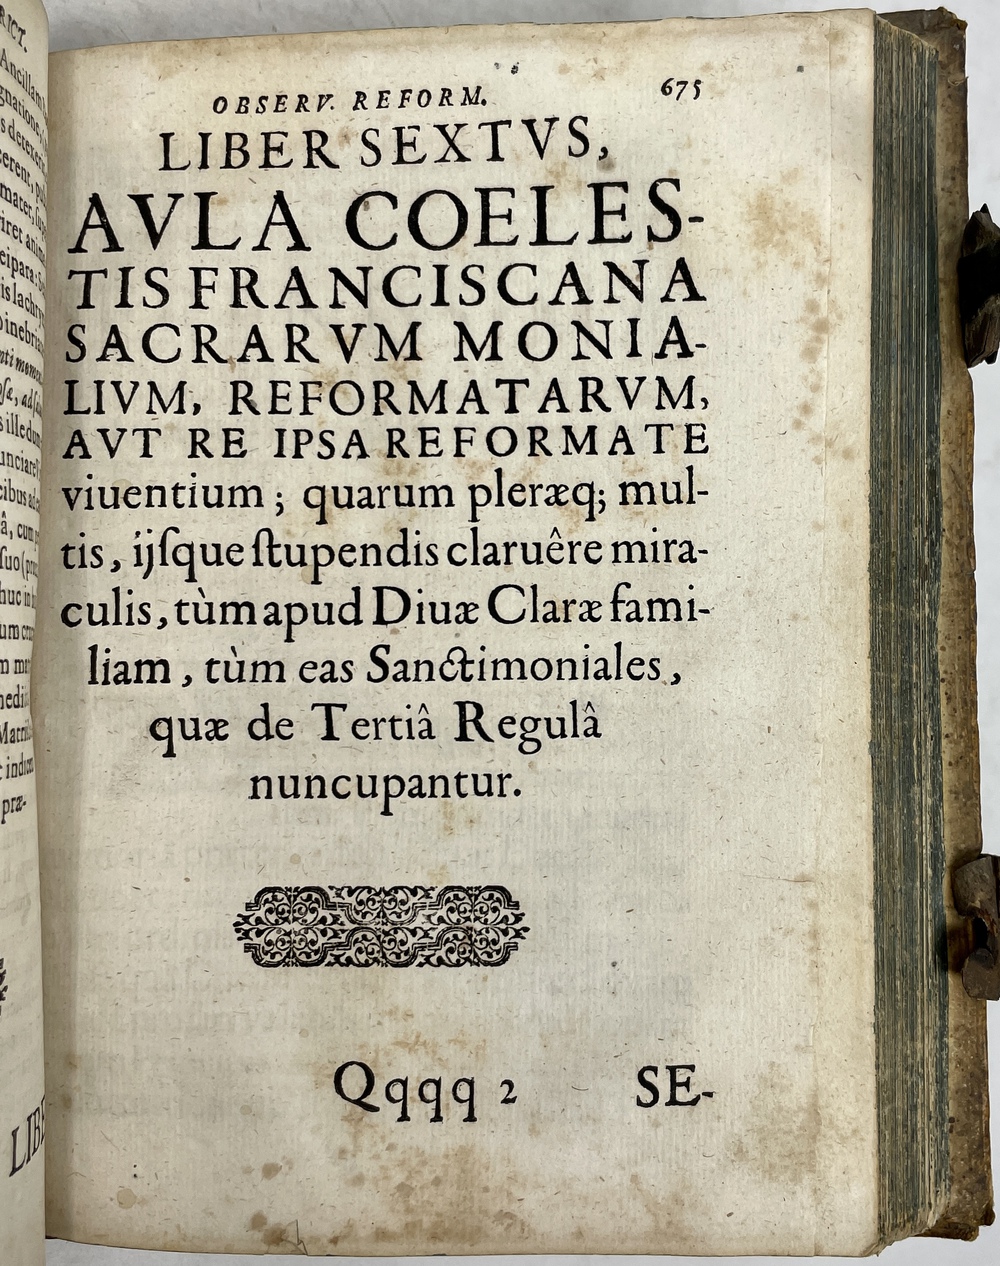 OBSERV. REFORM. 675
LIBER SEXTVS,
AVLA COELES-
TIS FRANCISCANA
SACRARVM MONIA-
LIVM, REFORMATARVM,
AVT RE IPSA REFORMATE
viuentium ; quarum pleræq; mul-
tis, ijſque ſtupendis claruêre mira-
culis, tùm apud Diuæ Claræ fami-
liam, tùm eas Sanctimoniales,
quæ de Tertiâ Regulâ
nuncupantur.
Qqqq 2 SE-